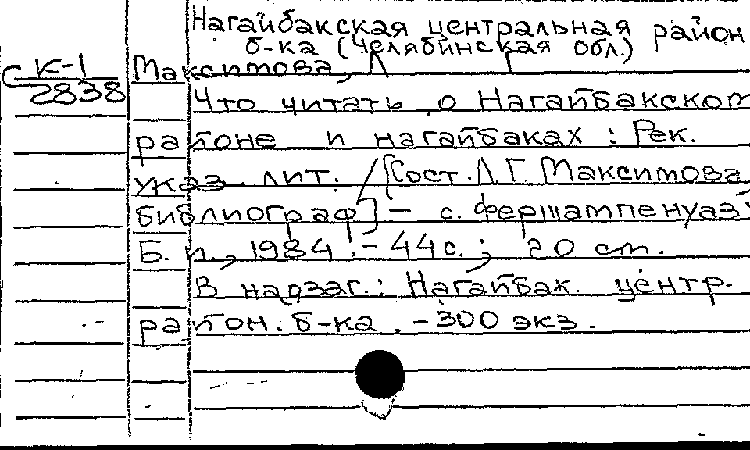 Нагайбакская центральная район
б-ка (Челябинская обл.)
С К-1
2838
Максимова, Л
Что читать о Нагайбакском
районе и нагайбаках : Рек.
указ. лит. / [Сост. Л. Г. Максимова
библиограф] - с. Фершампенуаз :
Б. и., 1984. - 44 с. ; 20 см.
В надзаг.: Нагайбак. центр.
район. б-ка. - 300 экз.